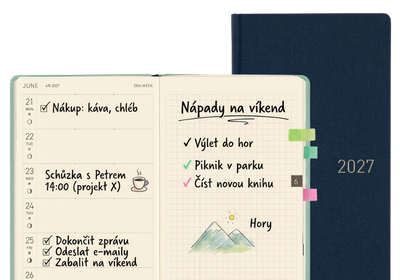 JUNE
6月 2027
25th WEEK
21
MON
Nákup: káva, chléb
22
TUE
23
WED
Schůzka s Petrem
14:00 (projekt X)
24
THU
25
FRI
Dokončit zprávu
Odeslat e-maily
Zabalit na víkend
26
Nápady na víkend
Výlet do hor
Piknik v parku
Číst novou knihu
6
Hory
2027